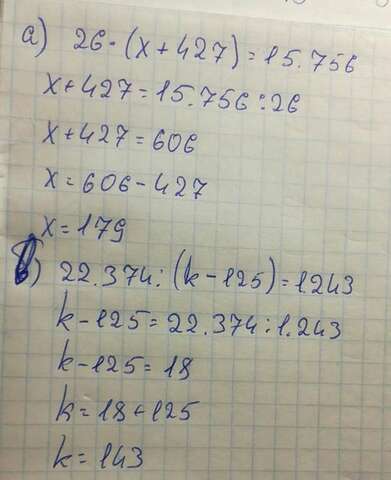 а) 26·(x+427)=15.756
x+427=15.756:26
x+427=606
x=606-427
x=179
б) 22.374:(k-125)=1.243
k-125=22.374:1.243
k-125=18
k=18+125
k=143